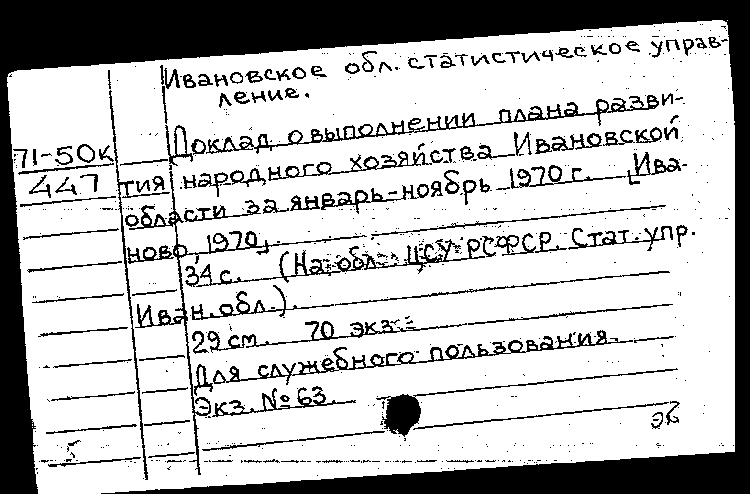 Ивановское обл. статистическое управ-
ление.
71-50к
447
Доклад о выполнении плана разви-
тия народного хозяйства Ивановской
области за январь-ноябрь 1970 г. [Ива-
ново, 1970]
34 с. (На обл.: ЦСУ РСФСР. Стат. упр.
Иван. обл.).
29 см. 70 экз.
Для служебного пользования.
Экз. № 63.
5